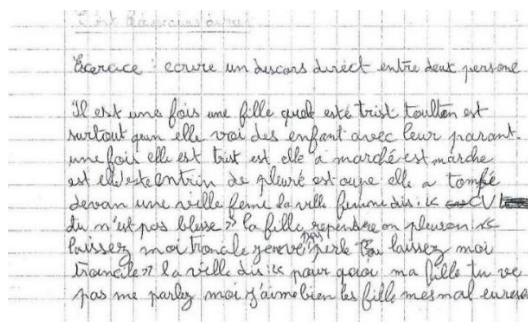 Exercice : ecrire un discors direct entre deux persone
Il est une fois une fille quel esté trist toulten est
surtout quan elle voi des enfant avec leur parant.
une fois elle est trist est elle a marché est marche
est elle este entrin de pleuré est oupe elle a tompé
devan une vielle feme la vielle femme dis : «
tu n'est pas blese » la fille rependre on pleuron : «
laissez moi trancile parle laissez moi
trancile » la ville dis : « pour qoroi ma fille tu ve
pas me parlez moi j'aime bien les fille mes mal eureuse